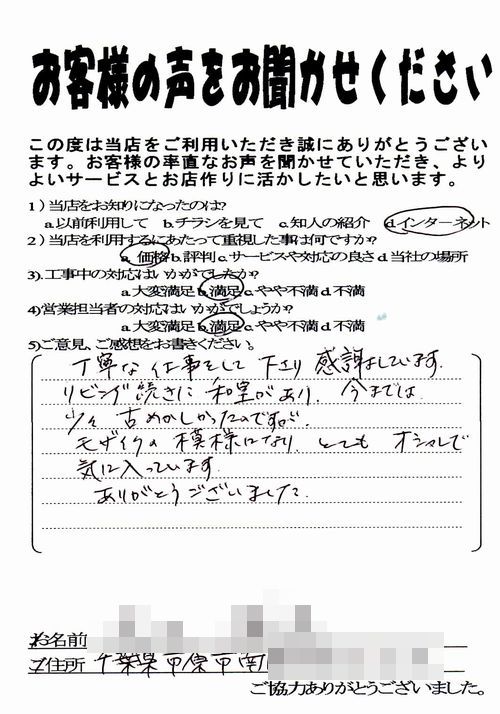 お客様の声をお聞かせください
この度は当店をご利用いただき誠にありがとうござい
ます。お客様の率直なお声を聞かせていただき、より
よいサービスとお店作りに活かしたいと思います。
1）当店をお知りになったのは?
a.以前利用して b.チラシを見て c.知人の紹介 d.インターネット
2）当店を利用するにあたって重視した事は何ですか?
a.価格 b.評判 c.サービスや対応の良さ d.当社の場所
3).工事中の対応はいかがでしたか?
a.大変満足 b.満足 c.やや不満 d.不満
4)営業担当者の対応はいかがでしょうか?
a.大変満足 b.満足 c.やや不満 d.不満
5)ご意見、ご感想をお書きください。
丁寧な仕事をして下さり感謝しています。
リビング続きに和室があり、今までは
少々古めかしかったのですが、
モザイクの模様になり、とてもオシャレで
気に入っています。
ありがとうございました。
お名前
ご住所 千葉県市原市南
ご協力ありがとうございました。